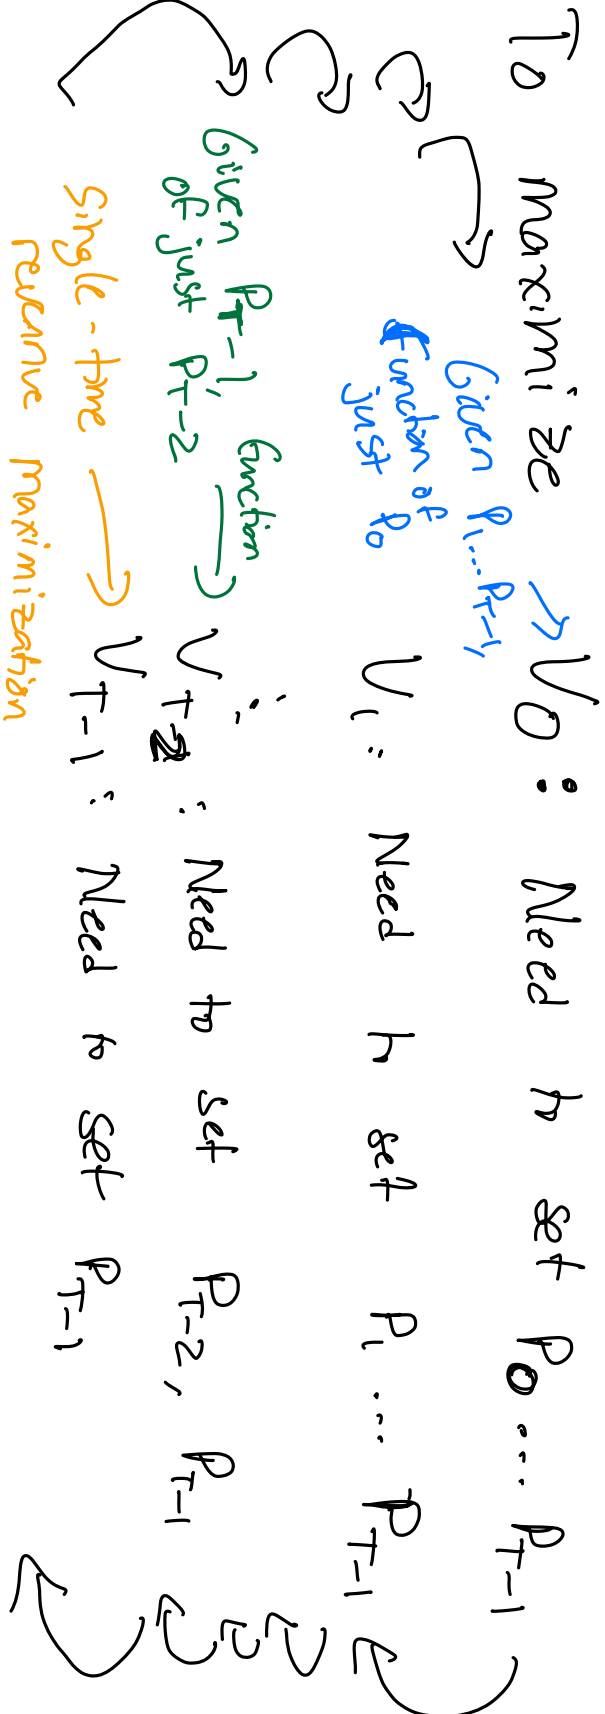 To maximize V0: Need to set P0...PT-1
Given P1...PT-1,
function of
just P0
V1: Need to set P1...PT-1
Given PT-1, function
of just PT-2
VT-2: Need to set PT-2, PT-1
Single-time
revenue maximization
VT-1: Need to set PT-1